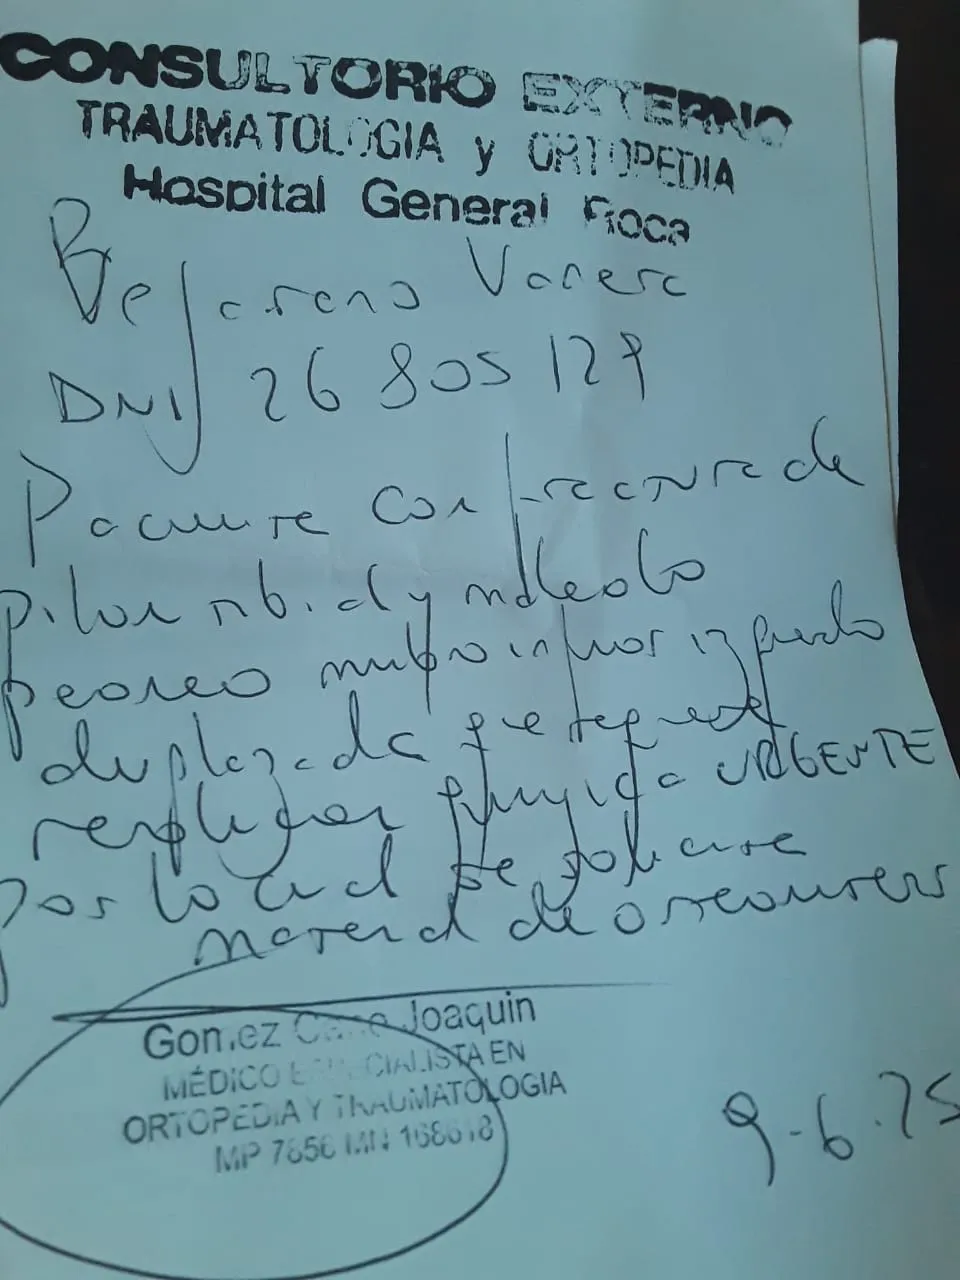 CONSULTORIO EXTERNO
TRAUMATOLOGIA y ORTOPEDIA
Hospital General Roca
Bejarano Vanesa
DNI 26 805 129
Paciente con fractura de
pilon tibial y maleolo
peroneo miembro inferior izquierdo
desplazada que requiere
resolucion quirurgica URGENTE
por lo cual se solicita
material de osteosintesis
Gomez Joaquin
MÉDICO ESPECIALISTA EN
ORTOPEDIA Y TRAUMATOLOGIA
MP 7656 MN 168618
9-6-25